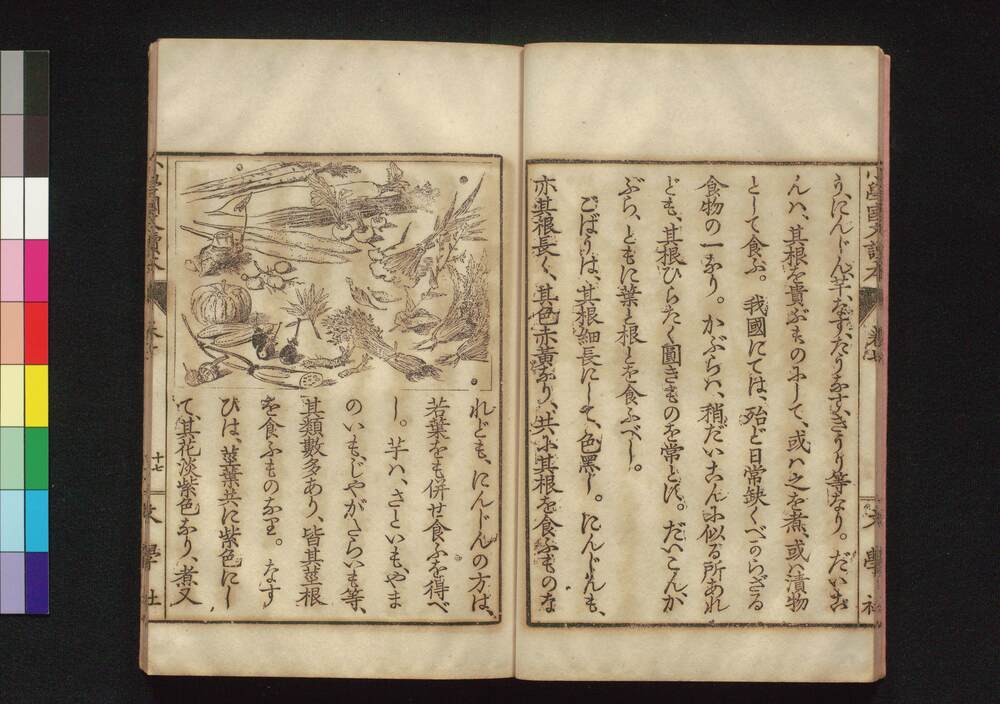 う、にんじん、芋、なす、たうなす、きうり等なり。だいこ
んハ、其根を貴ぶものにして、或ハ之を煮、或ハ漬物
として食ふ。我國にては、殆ど日常缺くべからざる
食物の一なり。かぶらハ、稍だいこんに似る所あれ
ども、其根ひらたく圓きものを常とす。だいこん、か
ぶら、ともに葉と根とを食ふべし。
ごばうは、其根細長にして、色黑し。にんじんも、
亦其根長く、其色赤黄なり、共に其根を食ふものな
れども、にんじんの方は、
若葉をも併せ食ふを得べ
し。芋ハ、さといも、やま
のいも、じやがたらいも等、
其類數多あり、皆其莖根
を食ふものなり。なす
びは、莖葉共に紫色にし
て、其花淡紫色なり、煮又
十七
文學社